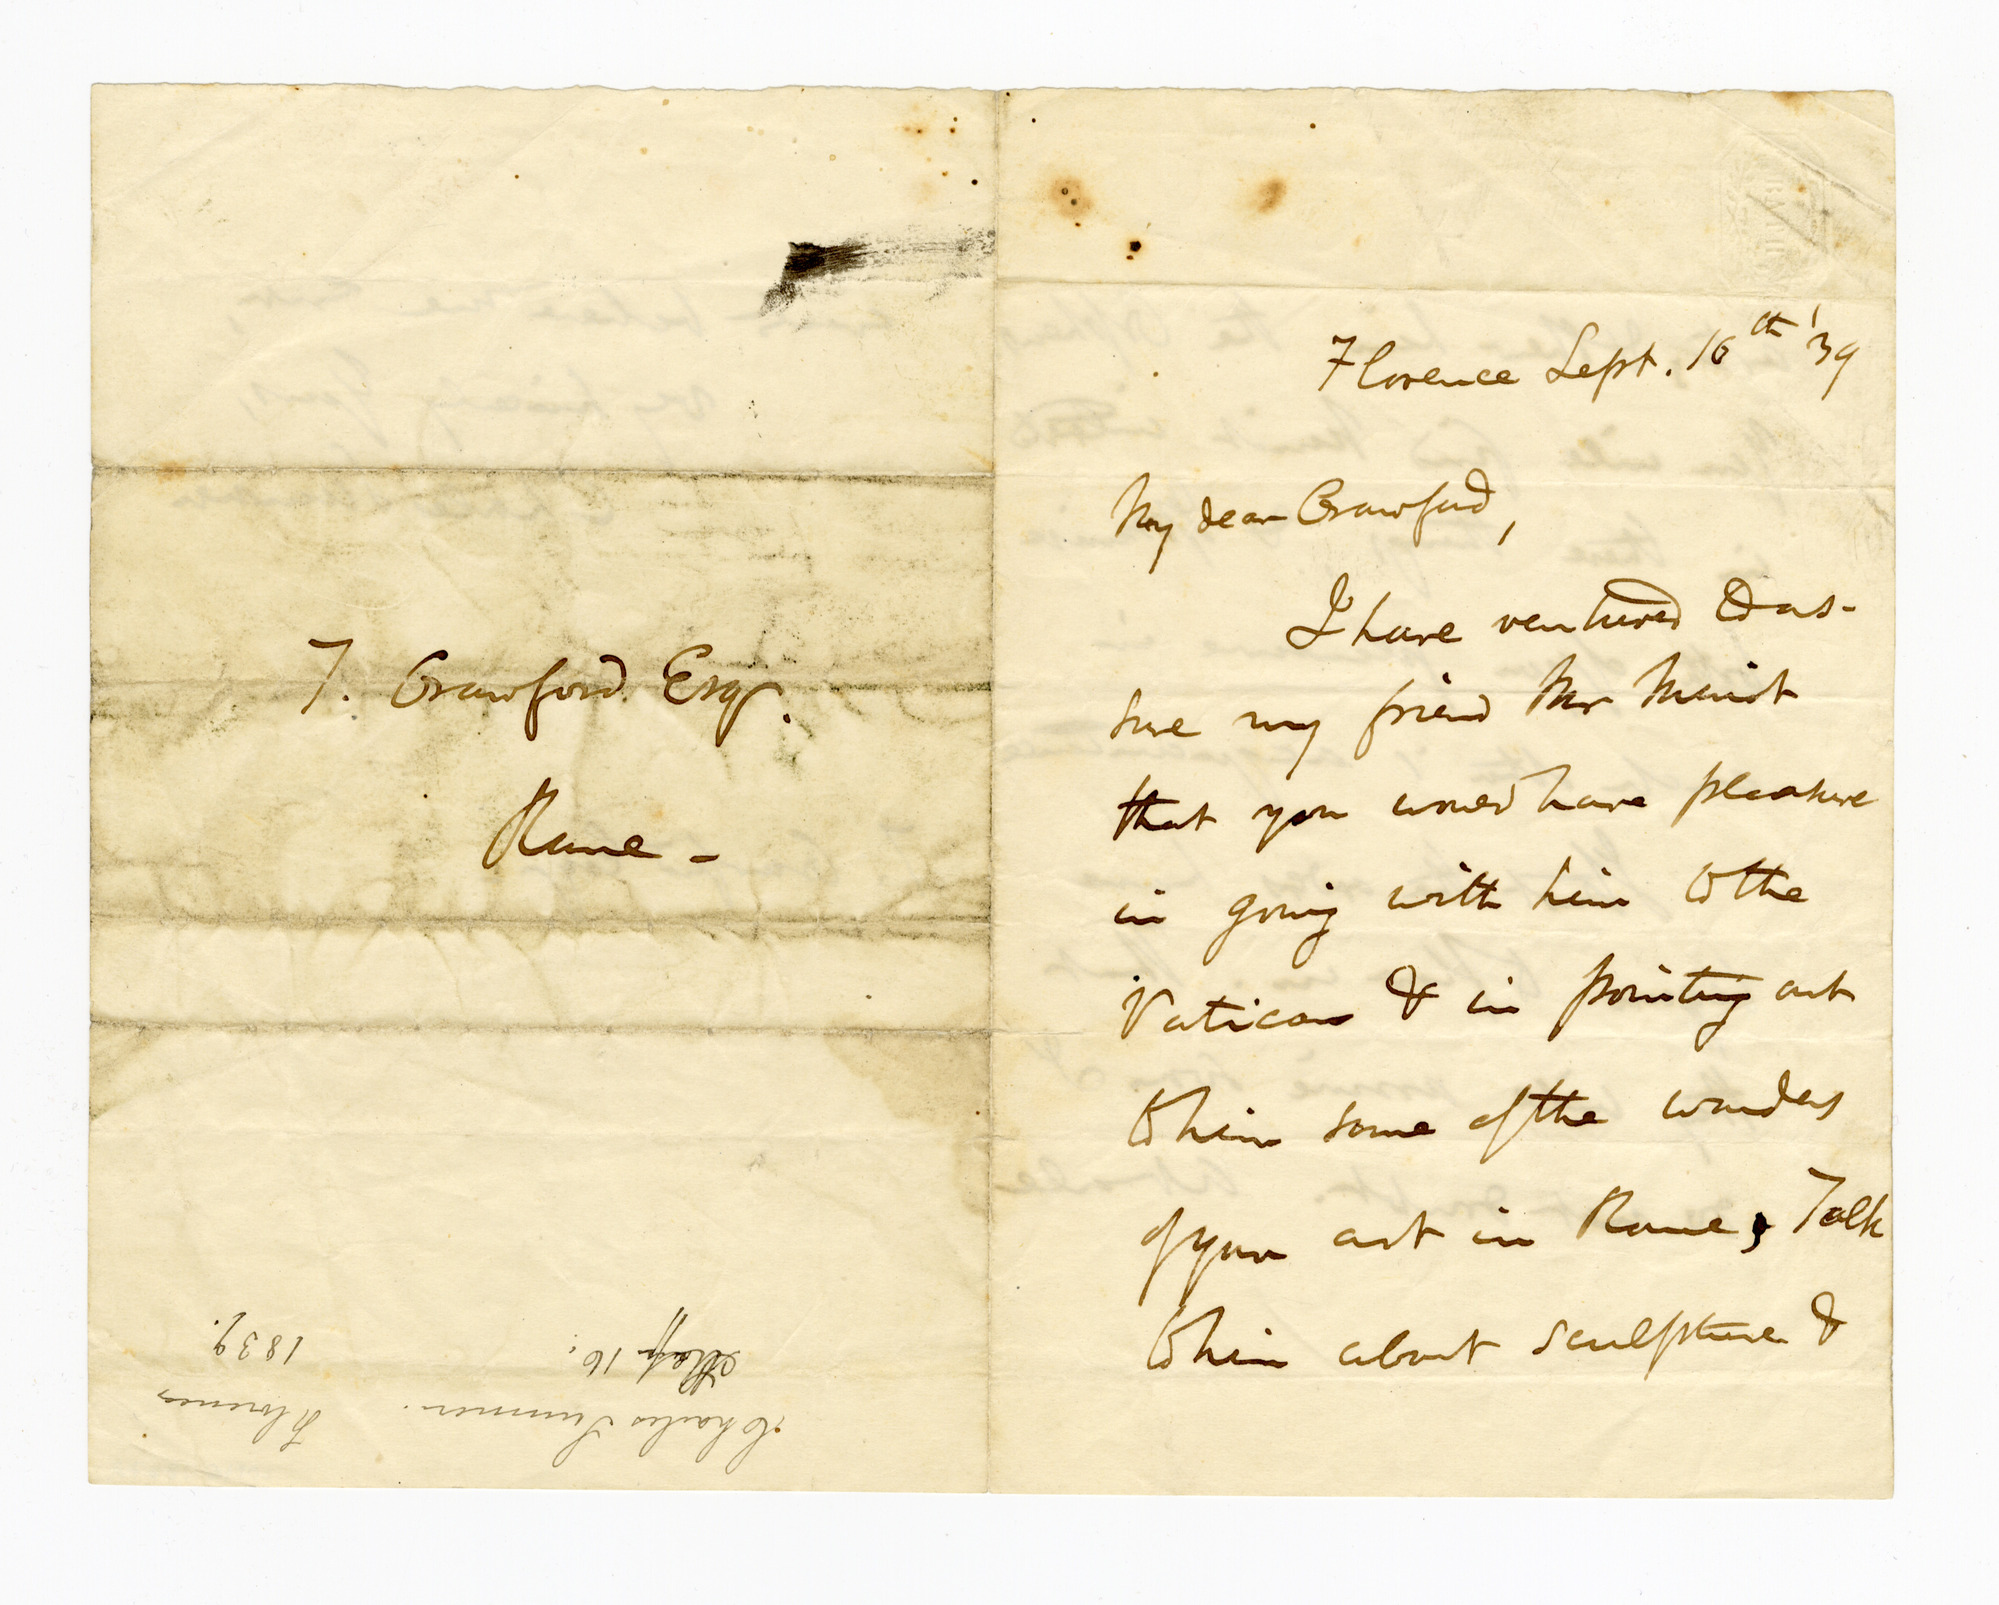 T. Crawford Esq.
Rome -
Charles Sumner. Florence
16. 1839.
BATH
Florence Sept. 16th '39
My dear Crawford,
I have ventured to as-
sure my friend Mr
that you would have pleasure
in going with him to the
Vatican & in pointing out
to him some of the wonders
of your art in Rome, Talk
to him about sculpture &